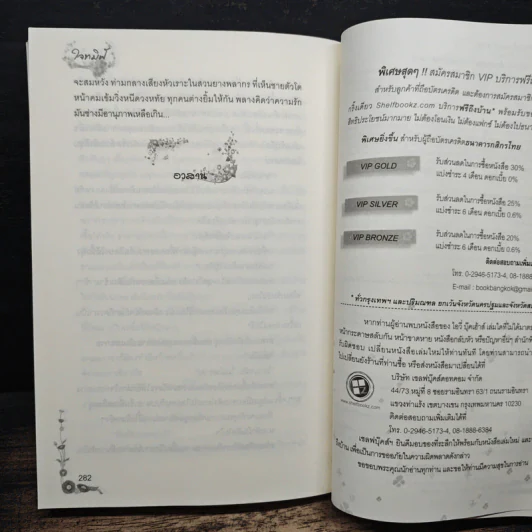 ใจทมิฬ
จะสมหวัง ท่ามกลางเสียงหัวเราะในสวนยางพลากร ที่เห็นชายตัวโต
หน้าคมเข้มวิ่งหนีดวงหทัย ทุกคนต่างยิ้มให้กัน พลางคิดว่าความรัก
มันช่างมีอานุภาพเหลือเกิน...
อวสาน
282
พิเศษสุดๆ !! สมัครสมาชิก VIP บริการฟรีถึง
สำหรับลูกค้าที่ถือบัตรเครดิต และต้องการสมัครสมาชิก
ครั้งเดียว Shelfbookz.com บริการฟรีถึงบ้าน* พร้อมรับของ
สิทธิประโยชน์มากมาย ไม่ต้องโอนเงิน ไม่ต้องแฟกซ์ ไม่ต้องไปธนา
พิเศษยิ่งขึ้น สำหรับผู้ถือบัตรเครดิตธนาคารกสิกรไทย
VIP GOLD รับส่วนลดในการซื้อหนังสือ 30%
แบ่งชำระ 4 เดือน ดอกเบี้ย 0%
VIP SILVER รับส่วนลดในการซื้อหนังสือ 25%
แบ่งชำระ 6 เดือน ดอกเบี้ย 0.6%
VIP BRONZE รับส่วนลดในการซื้อหนังสือ 20%
แบ่งชำระ 6 เดือน ดอกเบี้ย 0.6%
ติดต่อสอบถามเพิ่มเ
โทร. 0-2946-5173-4, 08-1888
E-mail : bookbangkok@gmai
* ทั่วกรุงเทพฯ และปริมณฑล ยกเว้นจังหวัดนครปฐมและจังหวัดส
หากท่านผู้อ่านพบหนังสือของ ไอวี่ บุ๊คเฮ้าส์ เล่มใดที่ไม่ได้มาต
หน้ากระดาษสลับกัน หน้าขาดหาย หนังสือกลับหัว หรือปัญหาอื่นๆ สำนักพิ
รับผิดชอบ เปลี่ยนหนังสือเล่มใหม่ให้ท่านทันที โดยท่านสามารถนำ
ไปเปลี่ยนยังร้านที่ท่านซื้อ หรือส่งหนังสือมาเปลี่ยนได้ที่
บริษัท เชลฟ์บุ๊คส์ดอทคอม จำกัด
44/73 หมู่ที่ 8 ซอยรามอินทรา 63/1 ถนนรามอินทรา
แขวงท่าแร้ง เขตบางเขน กรุงเทพมหานคร 10230
ติดต่อสอบถามเพิ่มเติมได้ที่
โทร. 0-2946-5173-4, 08-1888-6384
www.shelfbookz.com
เชลฟ์บุ๊คส์ฯ ยินดีมอบของที่ระลึกให้พร้อมกับหนังสือเล่มใหม่ และ
ถึงบ้าน เพื่อเป็นการขออภัยในความผิดพลาดดังกล่าว
ขอขอบพระคุณนักอ่านทุกท่าน และขอให้ท่านมีความสุขในการอ่าน